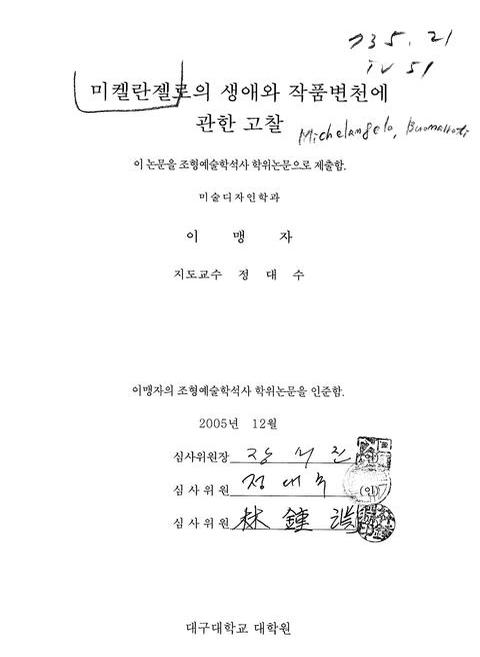 735.21
미켈란젤로의 생애와 작품변천에
관한 고찰
Michelangelo, Buonarroti
이 논문을 조형예술학석사 학위논문으로 제출함.
미술디자인학과
이 맹 자
지도교수 정 대 수
이맹자의 조형예술학석사 학위논문을 인준함.
2005년 12월
심사위원장
심사위원 정 대 수 (인)
심사위원 林 鍾
대구대학교 대학원